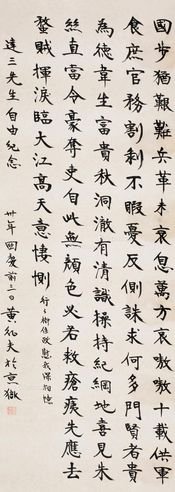 國步猶艱難兵革未衰息萬方哀嗷嗷十載供軍
食庶官務割剝不暇憂反側誅求何多門賢者貴
為德韋生富春秋洞澈有清識操持紀綱地喜見朱
絲直當令豪奪吏自此無顏色必若救瘡痍先應去
蝥賊揮淚臨大江高天意悽惻 行行樹佳政慰我深相憶
達三先生自由紀念
卅年國慶前三日黃 夫於京獄